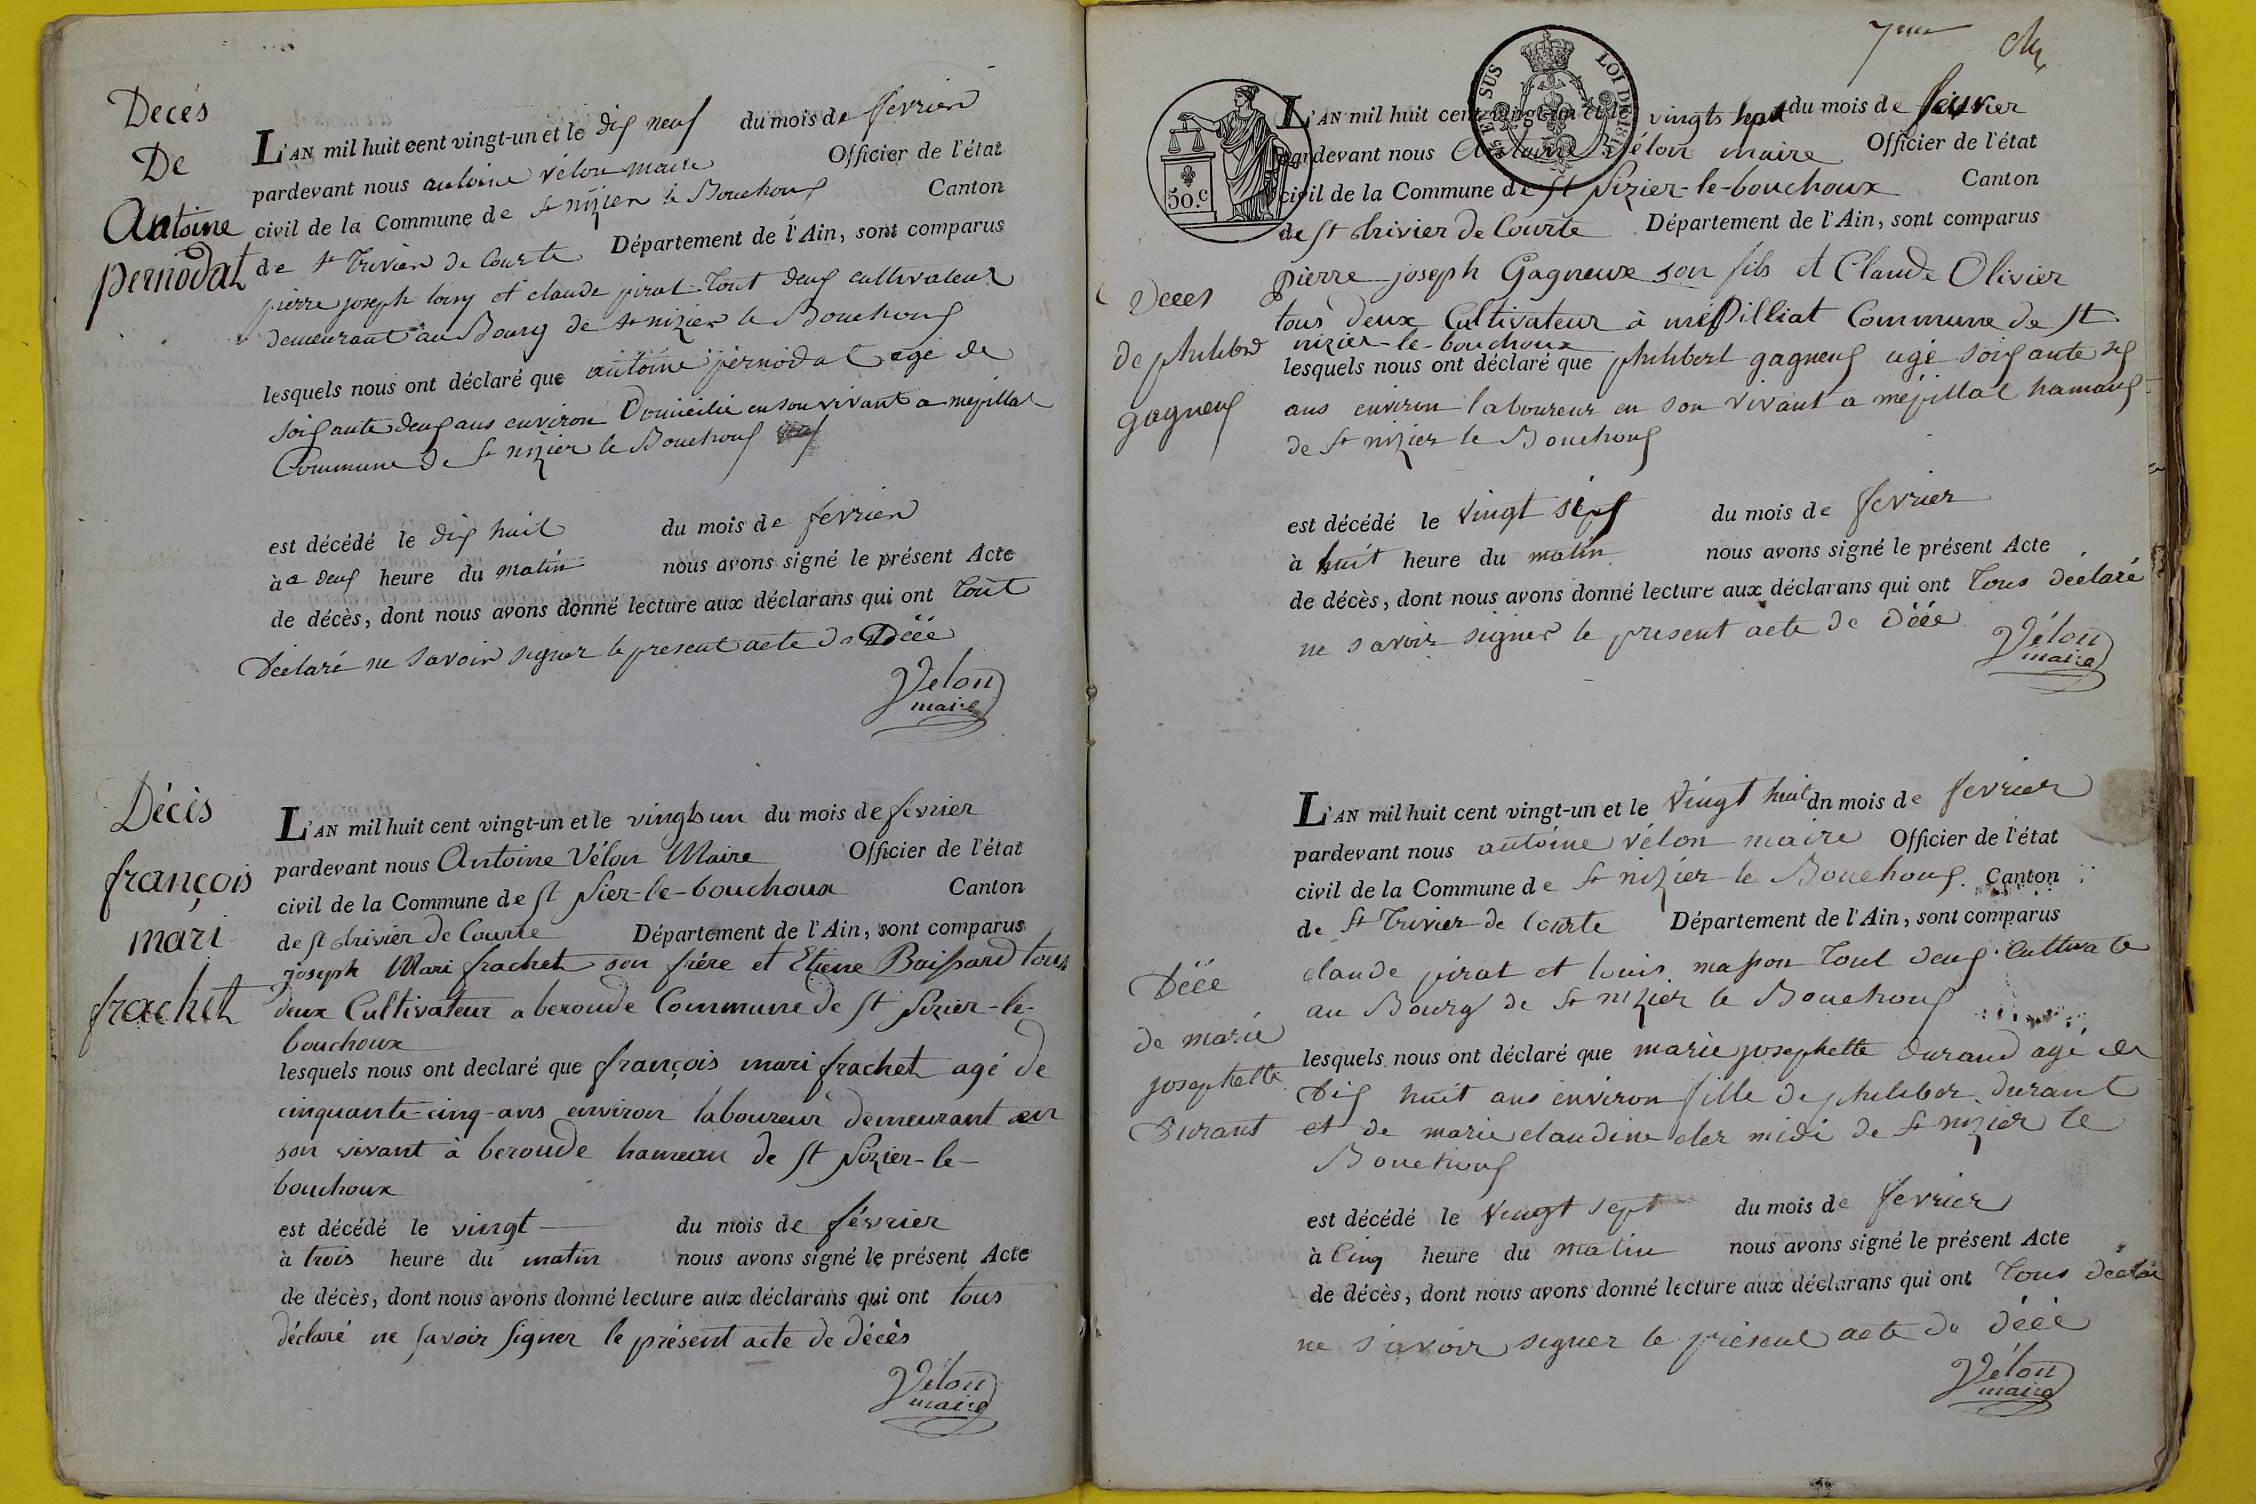 Decés
De
Antoine
pernodat
L'AN mil huit cent vingt-un et le dix neuf du mois de fevrier
pardevant nous antoine vélon maire Officier de l'état
civil de la Commune de St nizier le Bouchoux Canton
de St Trivier de Courte Département de l'Ain, sont comparus
pierre joseph et claude pirat Tout deux cultivateur
demeurant au Bourg de St nizier le Bouchoux
lesquels nous ont déclaré que antoine pernodat agé de
soixante deux ans environ Domicilié en son vivant a mépillat
Commune de St nizier le Bouchoux
est décédé le dix huit du mois de fevrier
à a deux heure du matin nous avons signé le présent Acte
de décès, dont nous avons donné lecture aux déclarans qui ont Tout
Déclaré ne savoir signer le present acte de Déée
Vélon
maire
Décès
françois
mari
frachet
L'AN mil huit cent vingt-un et le vingts un du mois de fevrier
pardevant nous Antoine Vélon Maire Officier de l'état
civil de la Commune de St Nier-le-bouchoux Canton
de St trivier de Courte Département de l'Ain, sont comparus
joseph Mari frachet son frére et Etiene Boissard tous
deux Cultivateur a beroude Commune de St Nizier-le-
bouchoux
lesquels nous ont declaré que françois mari frachet agé de
cinquante-cinq-ans environ laboureur demeurant en
son vivant à beroude hameau de St Nizier-le-
bouchoux
est décédé le vingt du mois de février
à trois heure du matin nous avons signé le présent Acte
de décès, dont nous avons donné lecture aux déclarans qui ont tous
déclaré ne savoir signer le présent acte de décès
Vélon
maire
7me
50.c
LOI DE 1816
L'AN mil huit cent vingt-un et le vingts sept du mois de fevrier
pardevant nous Antoine Vélon maire Officier de l'état
civil de la Commune de St Nizier-le-bouchoux Canton
de St trivier de Courte Département de l'Ain, sont comparus
pierre joseph Gagneux son fils et Claude Olivier
tous deux Cultivateur à mépilliat Commune de St
nizier-le-bouchoux
Deces
de philibert
gagneux
lesquels nous ont déclaré que philibert gagneux agé soixante six
ans environ laboureur en son vivant a mépillat hamaux
de St nizier le Bouchoux
est décédé le vingt sept du mois de fevrier
à huit heure du matin nous avons signé le présent Acte
de décès, dont nous avons donné lecture aux déclarans qui ont Tous déclaré
ne savoir signer le present acte de Déée
Vélon
maire
L'AN mil huit cent vingt-un et le vingt huit du mois de fevrier
pardevant nous antoine vélon maire Officier de l'état
civil de la Commune de St nizier le Bouchoux Canton
de St Trivier de Courte Département de l'Ain, sont comparus
claude pirat et louis masson Tout deux Cultivate
au Bourg de St nizier le Bouchoux
Déée
de marie
josephette
Durant
lesquels nous ont déclaré que marie josephette Durand agé de
Dix huit ans environ fille de philiber durant
et de marie claudine cler midi de St nizier le
Bouchoux
est décédé le vingt sept du mois de fevrier
à Cinq heure du matin nous avons signé le présent Acte
de décès, dont nous avons donné lecture aux déclarans qui ont Tous déclaré
ne savoir signer le présent acte de Déée
Vélon
maire